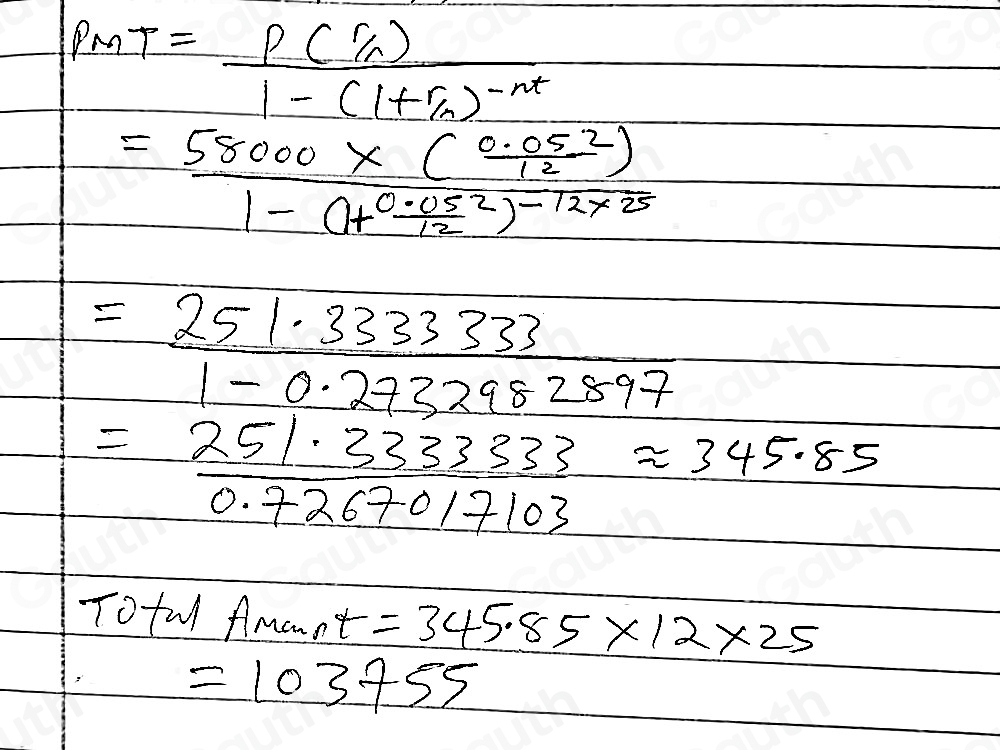 PMT = P(r/n) / 1 - (1+r/n)^-nt
= 58000 × (0.052/12) / 1 - (1+0.052/12)^-12×25
= 251.3333333 / 1 - 0.2732982897
= 251.3333333 / 0.7267017103 ≈ 345.85
Total Amount = 345.85 × 12 × 25
= 103755